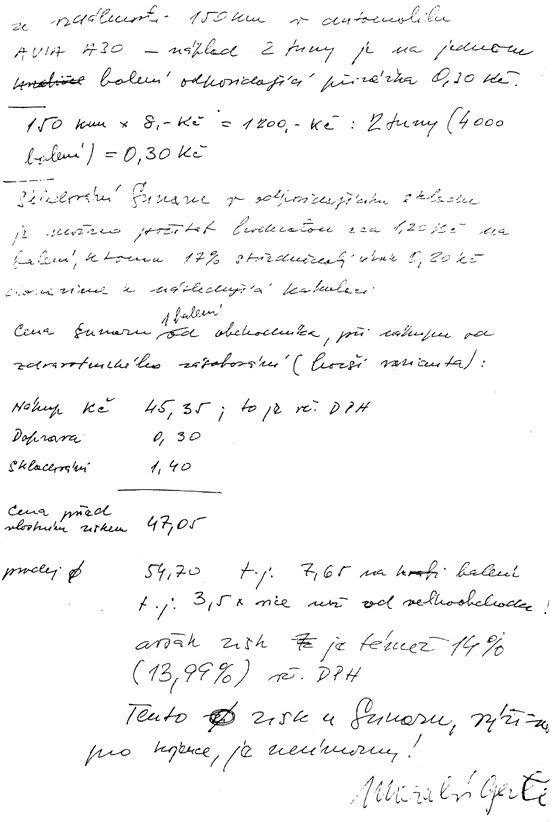 ze vzdálenosti 150 km v automobilu
AVIA A30 – náklad 2 tuny je na jednom
balení odpovídající přirážka 0,30 Kč.
150 km x 8,- Kč = 1200,- Kč : 2 tuny (4000
balení) = 0,30 Kč
Skladování Sunaru v odpovídajícím skladu
je možno počítat hodnotou cca 1,20 Kč na
balení, k tomu 17% 0,20 Kč
k následující kalkulaci
Cena Sunaru 1 balení od obchodníka, při nákupu od
zdravotnického zásobování (horší varianta) :
Nákup Kč 45,35 ; to je vč. DPH
Doprava 0,30
Skladování 1,40
Cena před
vlastním ziskem 47,05
prodej ϕ 54,70 t.j. 7,65 na balení
t.j. 3,5 x více než od velkoobchodu !
avšak zisk je téměř 14%
(13,99%) vč. DPH
Tento zisk u Sunaru,
pro kojence, je neúměrný !